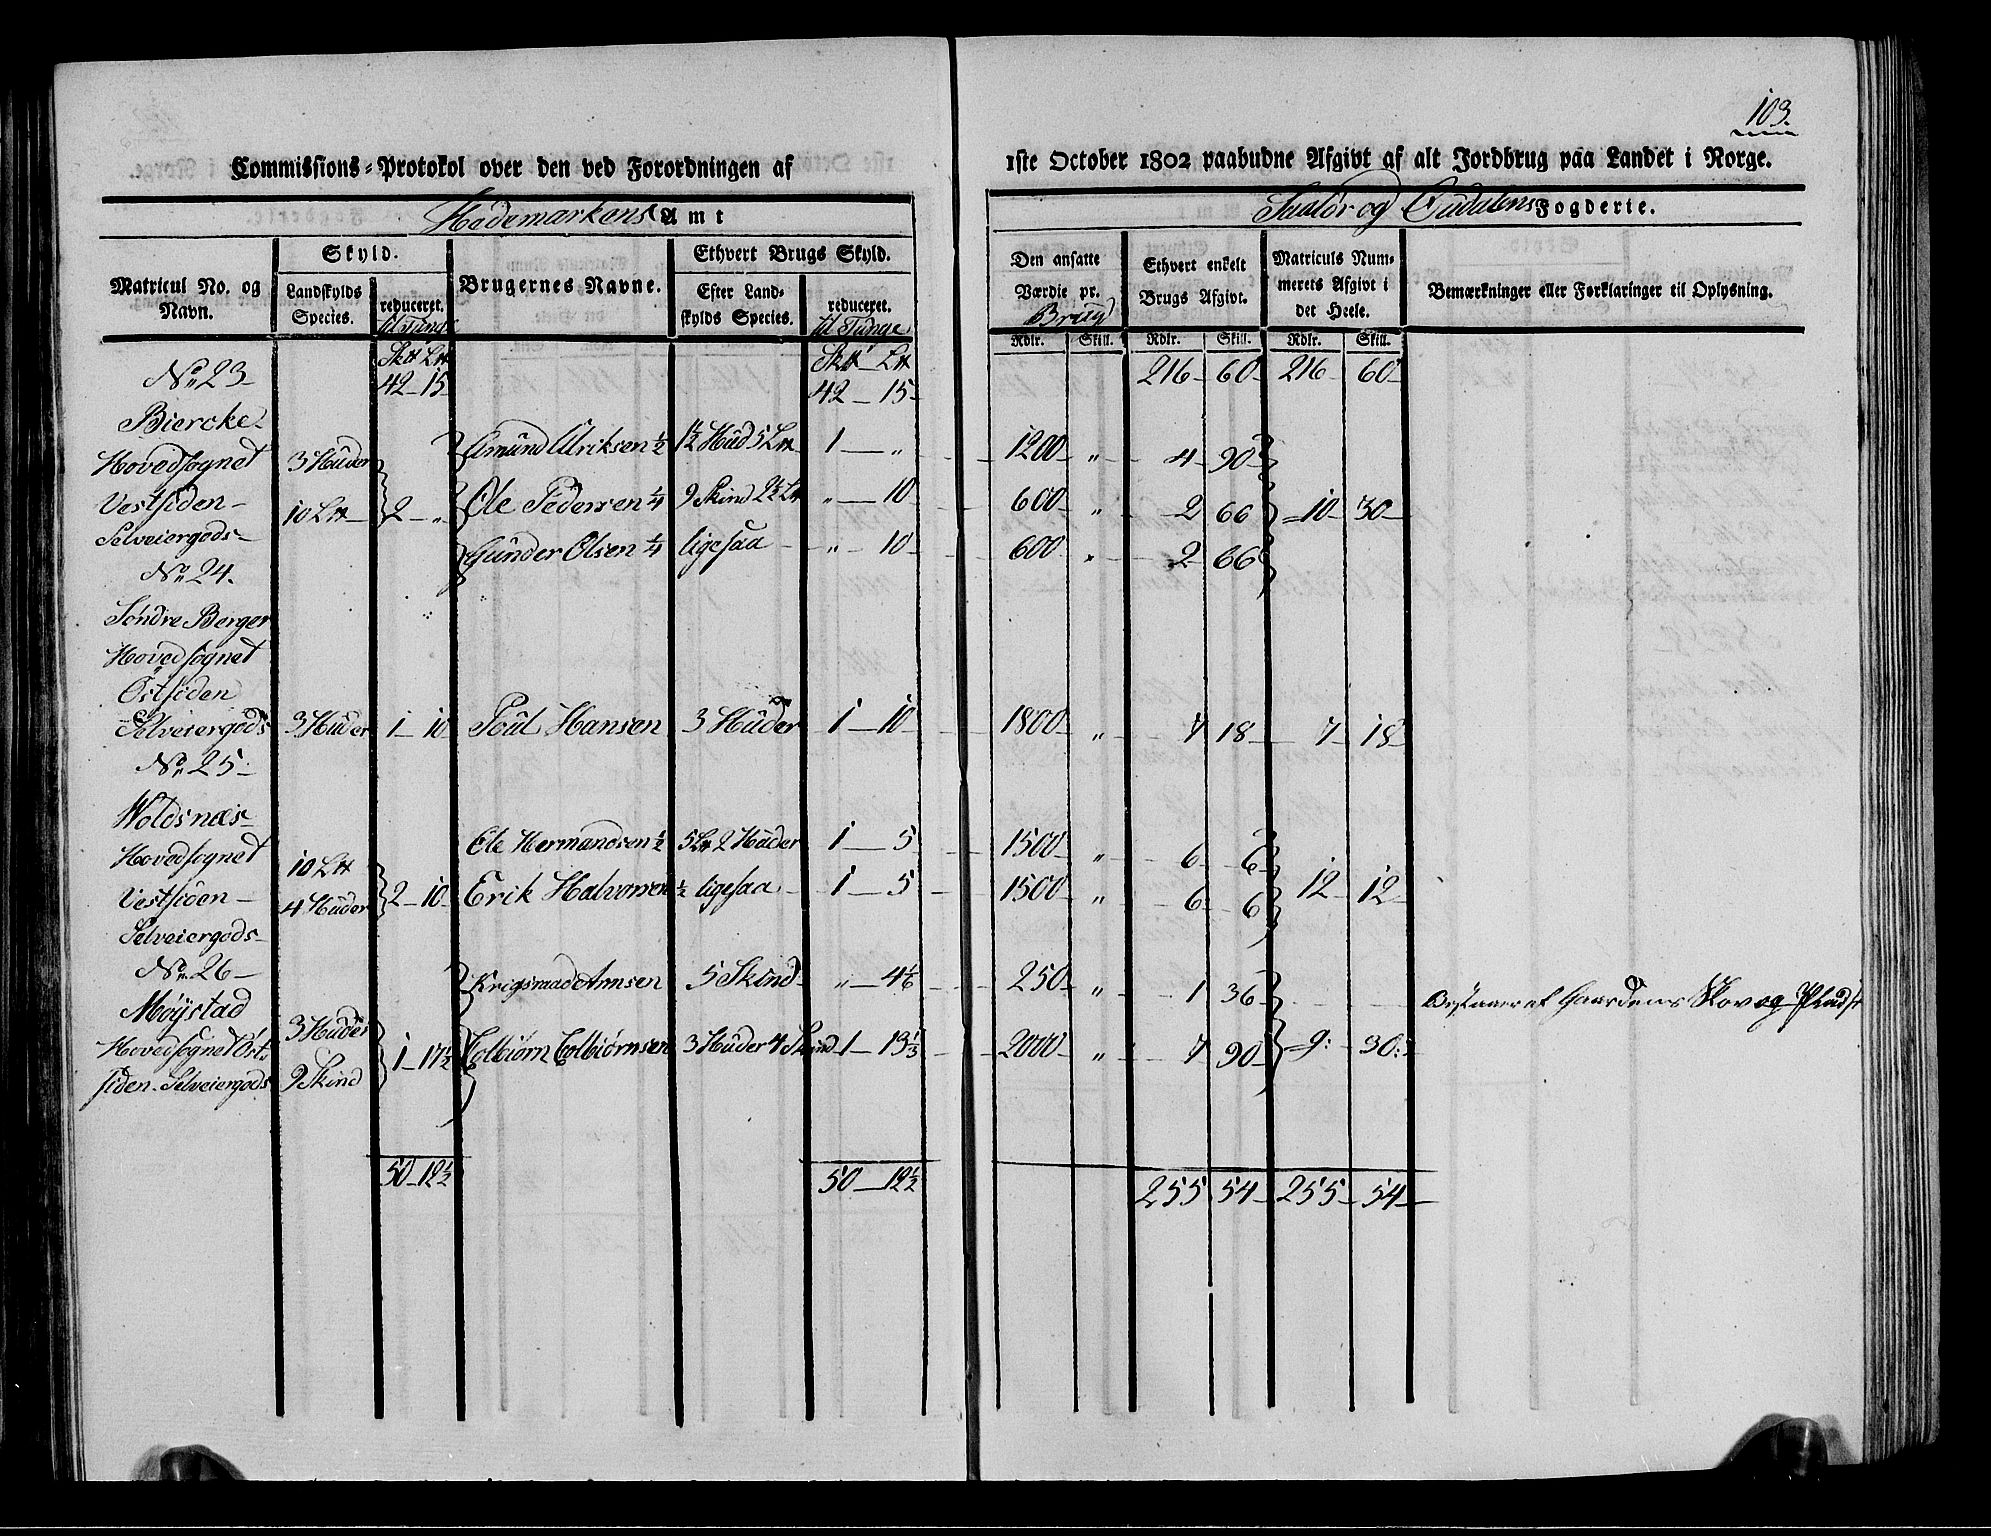 103.
Commissions-Protokol over den ved Forordningen af
1ste October 1802 paabudne Afgivt af alt Jordbrug paa Landet i Norge.
Hedemarkens Amt
Soløer og Oudalens Fogderie.
Matricul No. og Navn.
Skyld.
Landskylds Species.
reduceret.
til Tunge
Brugernes Navne.
Ethvert Brugs Skyld.
Efter Landskylds Species.
reduceret.
til Tunge
Den ansatte Værdie pr.
Brug
Ethvert enkelt Brugs Afgivt.
Matriculs Nummerets Afgivt i det Heele.
Bemærkninger eller Forklaringer til Oplysning.
Rdlr. Skill. Rdlr. Skill. Rdlr. Skill.
No. 23 42 15 42 15 216 60 216 60
Biercke
Hovedsognet 3 Huder Amund Ulriksen ½ 1½ Hud 5 L℔ 1 „ 1200 „ 4 90
Vestsiden 10 L℔ 2 „ Ole Pedersen ¼ 9 Skind 2½ L℔ „ 10 600 „ 2 66 10 30
Selveiergods Gunder Olsen ¼ ligesaa „ 10 600 „ 2 66
No. 24.
Søndre Berger
Hovedsognet
Østsiden
Selveiergods 3 Huder 1 10 Poul Hansen 3 Huder 1 10 1800 „ 7 18 7 18
No. 25
Woldsnæs
Hovedsognet 10 L℔ Ole Hermandsen ½ 5 L℔ 2 Huder 1 5 1500 „ 6 6
Vestsiden 4 Huder 2 10 Erik Halvorsen ½ ligesaa 1 5 1500 „ 6 6 12 12
Selveiergods
No. 26 Krigsraad Armsen 5 Skind „ 4⅙ 250 „ 1 36 Bestaaer af Gaardens Skov og Pladse
Møystad 3 Huder
Hovedsognet Øst- 1 17½ Colbiørn Colbiørnsen 3 Huder 4 Skind 1 13⅓ 2000 „ 7 90 9 30
siden. Selveiergods 9 Skind
50 12½ 50 12½ 255 54 255 54